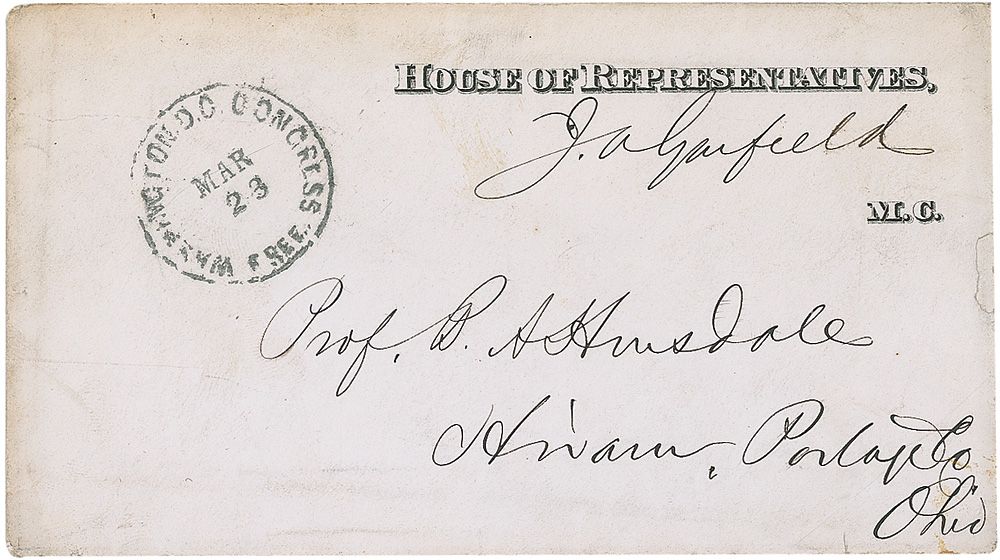 HOUSE OF REPRESENTATIVES,
J. A Garfield
M. C.
WASHINGTON. D.C CONGRESS FREE.
MAR
23
Prof. B. A Hinsdale
Hiram, Portage Co
Ohio